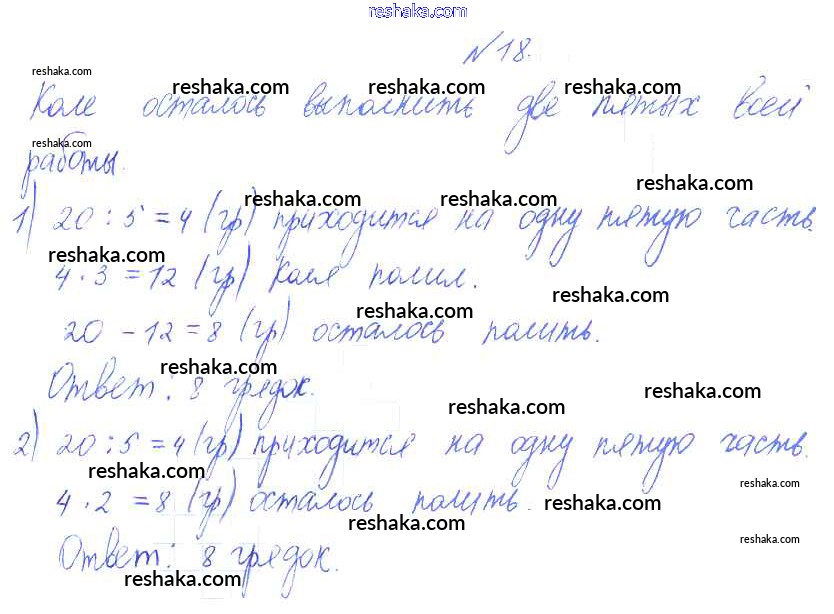 reshaka.com
№18.
reshaka.com
reshaka.com reshaka.com reshaka.com
Коле осталось выполнить две пятых всей
reshaka.com
работы.
reshaka.com
reshaka.com reshaka.com
1) 20 : 5 = 4 (гр) приходится на одну пятую часть.
reshaka.com
4 · 3 = 12 (гр) Коля полил.
reshaka.com
reshaka.com
20 - 12 = 8 (гр) осталось полить.
reshaka.com
Ответ: 8 грядок.
reshaka.com
reshaka.com
2) 20 : 5 = 4 (гр) приходится на одну пятую часть.
reshaka.com
reshaka.com
4 · 2 = 8 (гр) осталось полить.
reshaka.com
reshaka.com
reshaka.com
Ответ: 8 грядок.
reshaka.com